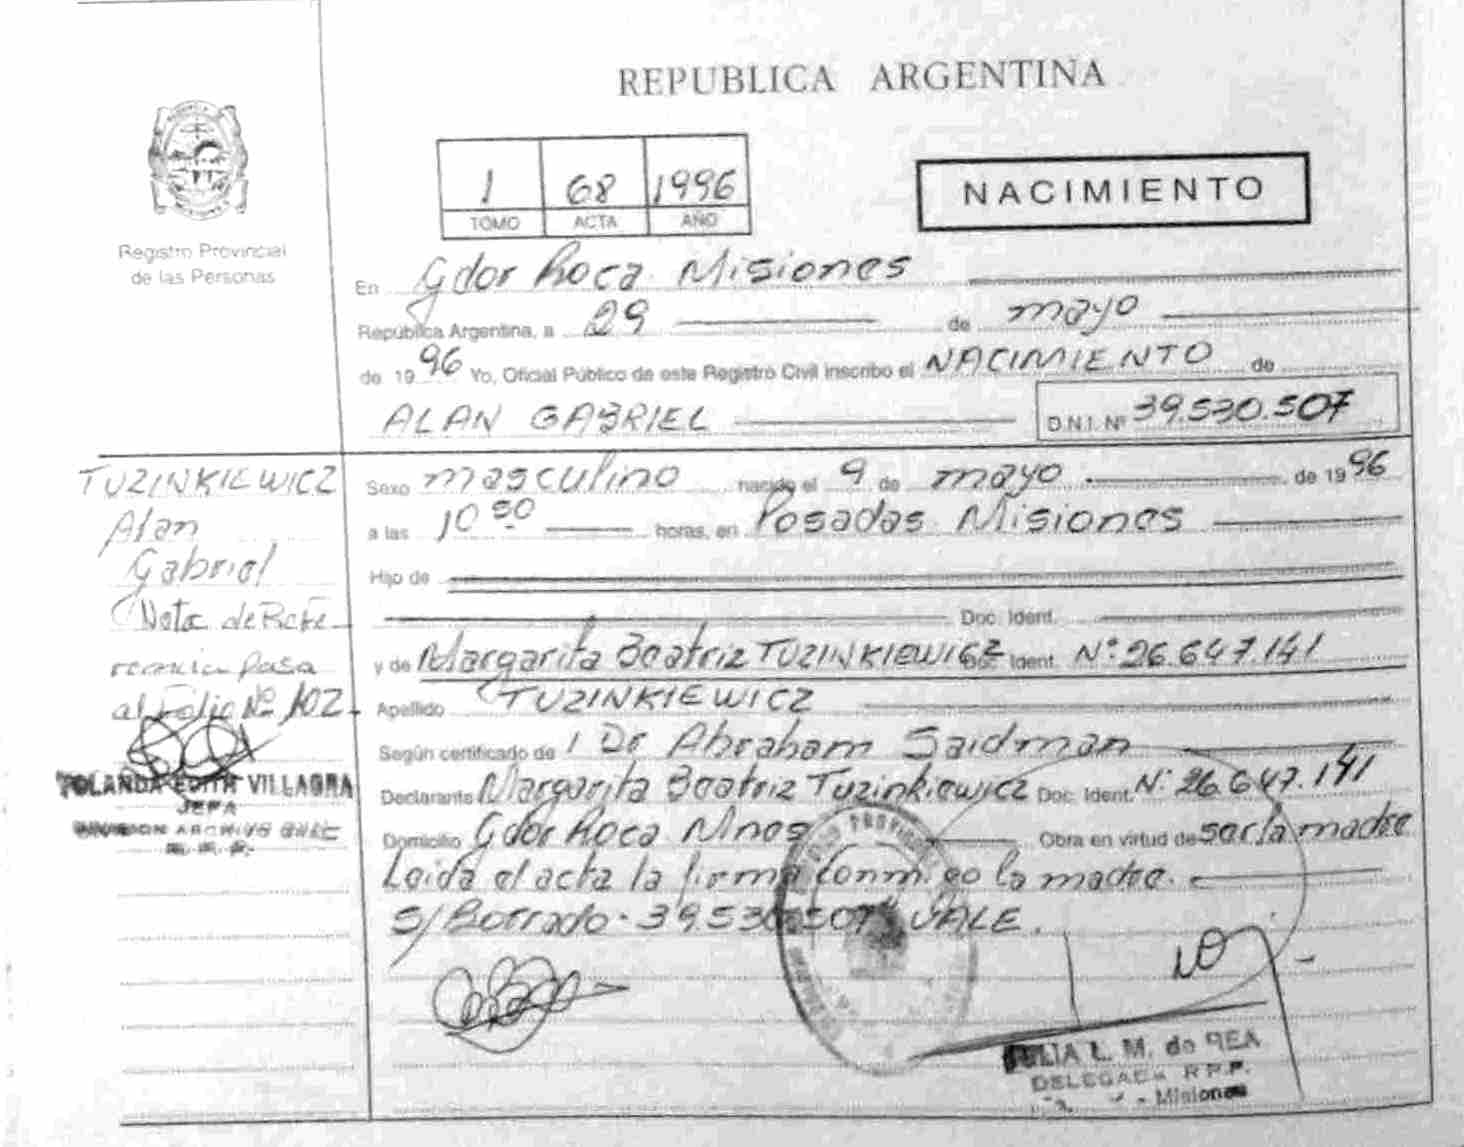 REPUBLICA ARGENTINA
1 68 1996
TOMO ACTA AÑO
NACIMIENTO
Registro Provincial
de las Personas
En Gdor Roca Misiones
República Argentina, a 29 de mayo
de 1996 Yo, Oficial Público de este Registro Civil inscribo el NACIMIENTO de
ALAN GABRIEL D.N.I. Nº 39.530.507
TUZINKIEWICZ
Alan
Gabriel
Nota de Refe-
rencia pasa
al Folio Nº 102
YOLANDA EDITH VILLAGRA
JEFA
DIVISION ARCHIVO
Sexo masculino nacido el 9 de mayo de 1996
a las 10 50 horas, en Posadas Misiones
Hijo de
Doc. Ident.
y de Margarita Beatriz TUZINKIEWICZ Doc. Ident. Nº 26.647.141
Apellido TUZINKIEWICZ
Según certificado de 1 Dr Abraham Saidman
Declarante Margarita Beatriz Tuzinkiewicz Doc. Ident. Nº 26.647.141
Domicilio Gdor Roca Mnes Obra en virtud de ser la madre
Leida el acta la firma conmigo la madre.
S/Borrado - 39.530.507 VALE.
JULIA L. M. de REA
DELEGADA R.P.P.
- Misiones